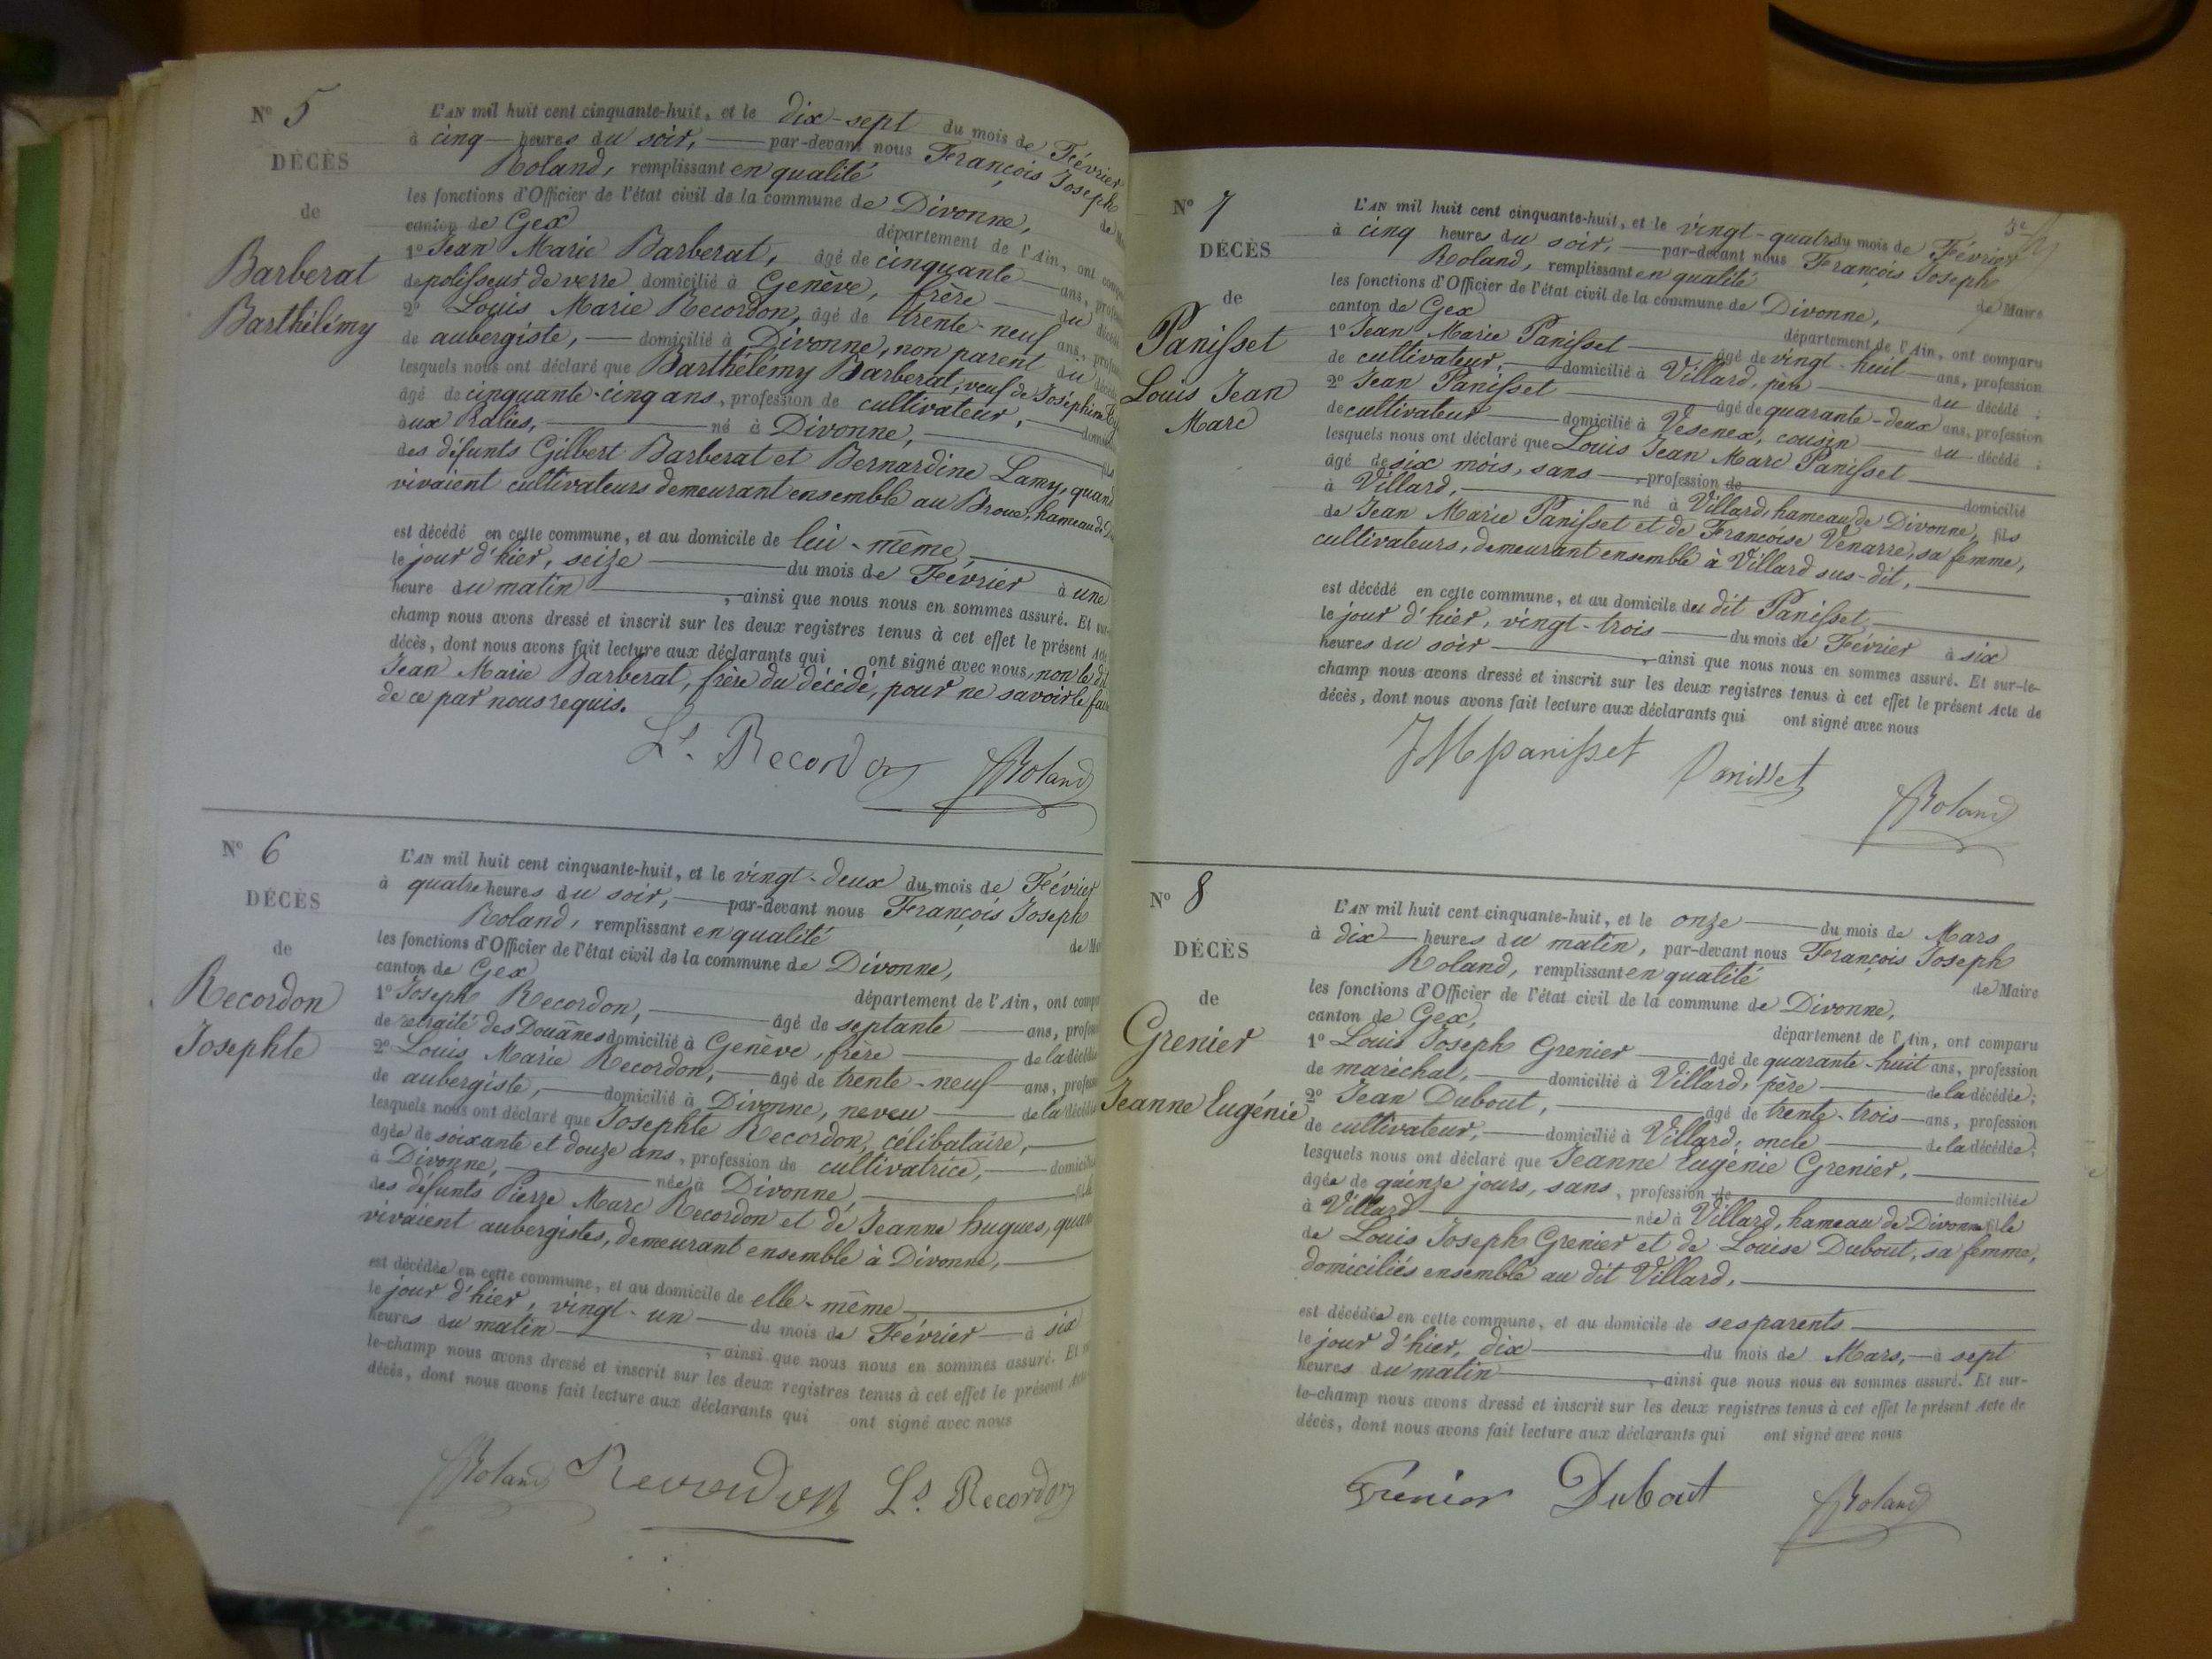 N° 5
DÉCÈS
de
Barberat
Barthélémy
L'AN mil huit cent cinquante-huit, et le dix-sept du mois de Février
à cinq heures du soir, par-devant nous François Joseph
Roland, remplissant en qualité de
les fonctions d'Officier de l'état civil de la commune de Divonne,
canton de Gex département de l'Ain, ont
1° Jean Marie Barberat, âgé de cinquante ans,
de polisseur de verre domicilié à Genève, frère du
2° Louis Marie Recordon, âgé de trente-neuf ans,
de aubergiste, domicilié à Divonne, non parent du
lesquels nous ont déclaré que Barthélémy Barberat, veuf de
âgé de cinquante-cinq ans, profession de cultivateur,
aux né à Divonne, fils
des défunts Gilbert Barberat et Bernardine Lamy, quand
vivaient cultivateurs demeurant ensemble au hameau de
est décédé en cette commune, et au domicile de lui-même
le jour d'hier, seize du mois de Février à une
heure du matin, ainsi que nous nous en sommes assuré. Et
champ nous avons dressé et inscrit sur les deux registres tenus à cet effet le présent Acte
décès, dont nous avons fait lecture aux déclarants qui ont signé avec nous, non le dit
Jean Marie Barberat, frère du décédé, pour ne savoir le
de ce par nous requis.
Ls. Recordon Roland
N° 6
DÉCÈS
de
Recordon
Josephte
L'AN mil huit cent cinquante-huit, et le vingt-deux du mois de Février
à quatre heures du soir, par-devant nous François Joseph
Roland, remplissant en qualité de
les fonctions d'Officier de l'état civil de la commune de Divonne,
canton de Gex département de l'Ain, ont
1° Joseph Recordon, âgé de septante ans,
de retraité des Douanes domicilié à Genève, frère de la
2° Louis Marie Recordon, âgé de trente-neuf ans,
de aubergiste, domicilié à Divonne, neveu de la
lesquels nous ont déclaré que Josephte Recordon, célibataire,
âgée de soixante et douze ans, profession de cultivatrice,
à Divonne, née à Divonne,
des défunts Pierre Marc Recordon et de Jeanne hugues, quand
vivaient aubergistes, demeurant ensemble à Divonne,
est décédée en cette commune, et au domicile de elle-même
le jour d'hier, vingt-un du mois de Février à six
heures du matin, ainsi que nous nous en sommes assuré. Et
le-champ nous avons dressé et inscrit sur les deux registres tenus à cet effet le présent Acte
décès, dont nous avons fait lecture aux déclarants qui ont signé avec nous
Roland Recordon Ls. Recordon
N° 7
DÉCÈS
de
Panisset
Louis Jean
Marc
L'AN mil huit cent cinquante-huit, et le vingt-quatre du mois de Février
à cinq heures du soir, par-devant nous François Joseph
Roland, remplissant en qualité de Maire
les fonctions d'Officier de l'état civil de la commune de Divonne,
canton de Gex département de l'Ain, ont comparu
1° Jean Marie Panisset âgé de vingt-huit ans, profession
de cultivateur, domicilié à Villard, père du décédé ;
2° Jean Panisset âgé de quarante-deux ans, profession
de cultivateur domicilié à Vesenex, cousin du décédé ;
lesquels nous ont déclaré que Louis Jean Marc Panisset
âgé de six mois, sans profession de domicilié
à Villard, né à Villard, hameau de Divonne, fils
de Jean Marie Panisset et de Françoise Venarre, sa femme,
cultivateurs, demeurant ensemble à Villard sus-dit,
est décédé en cette commune, et au domicile du dit Panisset
le jour d'hier, vingt-trois du mois de Février à six
heures du soir, ainsi que nous nous en sommes assuré. Et sur-le-
champ nous avons dressé et inscrit sur les deux registres tenus à cet effet le présent Acte de
décès, dont nous avons fait lecture aux déclarants qui ont signé avec nous
JM panisset Panisset Roland
N° 8
DÉCÈS
de
Grenier
Jeanne Eugénie
L'AN mil huit cent cinquante-huit, et le onze du mois de Mars
à dix heures du matin, par-devant nous François Joseph
Roland, remplissant en qualité de Maire
les fonctions d'Officier de l'état civil de la commune de Divonne,
canton de Gex, département de l'Ain, ont comparu
1° Louis Joseph Grenier âgé de quarante-huit ans, profession
de maréchal, domicilié à Villard, père de la décédée ;
2° Jean Dubout, âgé de trente-trois ans, profession
de cultivateur, domicilié à Villard, oncle de la décédée ;
lesquels nous ont déclaré que Jeanne Eugénie Grenier,
âgée de quinze jours, sans, profession de domiciliée
à Villard née à Villard, hameau de Divonne fille
de Louis Joseph Grenier et de Louise Dubout, sa femme,
domiciliés ensemble au dit Villard,
est décédée en cette commune, et au domicile de ses parents
le jour d'hier, dix du mois de Mars, à sept
heures du matin, ainsi que nous nous en sommes assuré. Et sur-
le-champ nous avons dressé et inscrit sur les deux registres tenus à cet effet le présent Acte de
décès, dont nous avons fait lecture aux déclarants qui ont signé avec nous
Grenier Dubout Roland